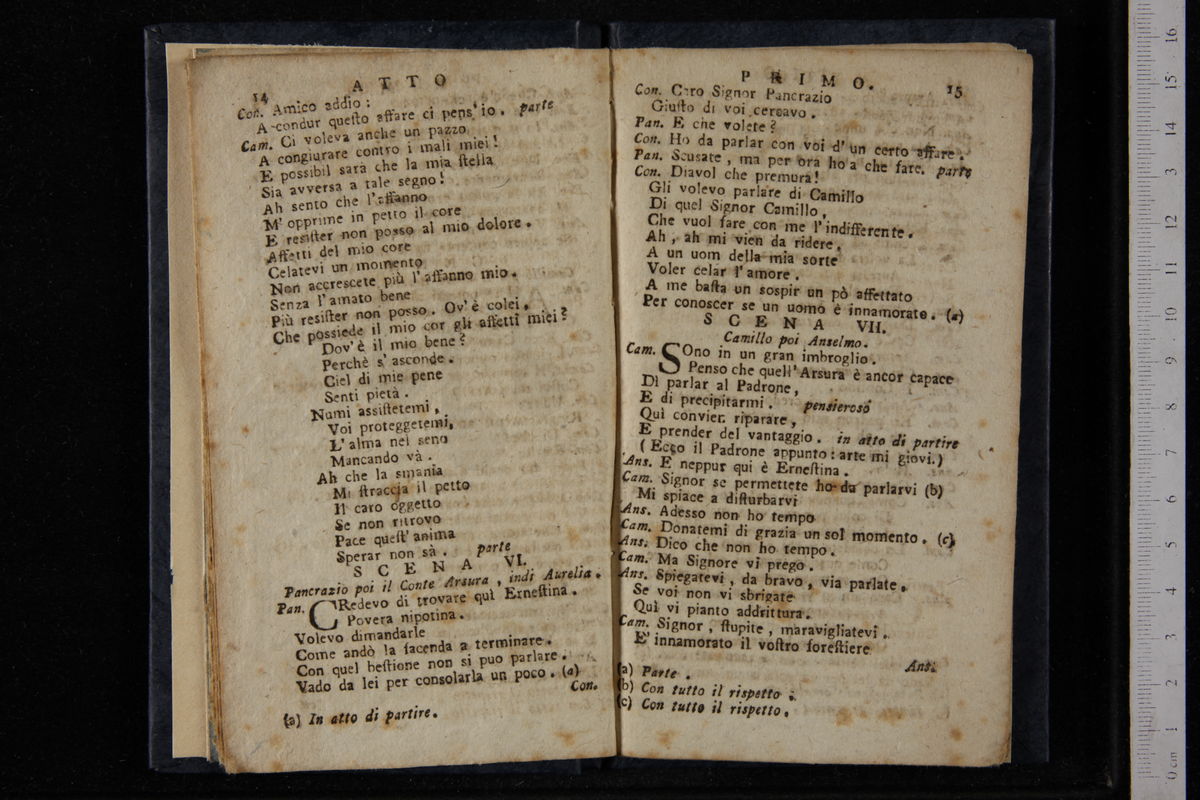 14 ATTO
Con. Amico addio :
A condur questo affare ci pens' io . parte
Cam. Ci voleva anche un pazzo
A congiurare contro i mali miei !
E possibil sarà che la mia stella
Sia avversa a tale segno !
Ah sento che l'affanno
M' opprime in petto il core
E resister non posso al mio dolore .
Affetti del mio core
Celatevi un momento
Non accrescete più l' affanno mio .
Senza l' amato bene
Più resister non posso . Ov' è colei ,
Che possiede il mio cor gli affetti miei ?
Dov' è il mio bene ?
Perchè s' asconde .
Ciel di mie pene
Senti pietà .
Numi assistetemi ,
Voi proteggetemi ,
L' alma nel seno
Mancando và .
Ah che la smania
Mi straccia il petto
Il caro oggetto
Se non ritrovo
Pace quest' anima
Sperar non sà . parte
SCENA VI.
Pancrazio poi il Conte Arsura , indi Aurelia .
Pan. CRedevo di trovare quì Ernestina .
Povera nipotina .
Volevo dimandarle
Come andò la facenda a terminare .
Con quel bestione non si puo parlare .
Vado da lei per consolarla un poco . (a)
Con.
(a) In atto di partire .
PRIMO. 15
Con. Caro Signor Pancrazio
Giusto di voi cercavo .
Pan. E che volete ?
Con. Ho da parlar con voi d' un certo affare .
Pan. Scusate , ma per ora ho a che fare. parte
Con. Diavol che premura !
Gli volevo parlare di Camillo
Di quel Signor Camillo ,
Che vuol fare con me l' indifferente .
Ah , ah mi vien da ridere ,
A un uom della mia sorte
Voler celar l' amore .
A me basta un sospir un pò affettato
Per conoscer se un uomo è innamorato . (a)
SCENA VII.
Camillo poi Anselmo .
Cam. SOno in un gran imbroglio .
Penso che quell' Arsura è ancor capace
Di parlar al Padrone ,
E di precipitarmi . pensieroso
Quì convien riparare ,
E prender del vantaggio . in atto di partire
( Ecco il Padrone appunto : arte mi giovi. )
Ans. E neppur qui è Ernestina .
Cam. Signor se permettete ho da parlarvi (b)
Mi spiace a disturbarvi
Ans. Adesso non ho tempo
Cam. Donatemi di grazia un sol momento . (c)
Ans. Dico che non ho tempo .
Cam. Ma Signore vi prego .
Ans. Spiegatevi , da bravo , via parlate .
Se voi non vi sbrigate
Quì vi pianto addrittura .
Cam. Signor , stupite , maravigliatevi .
E' innamorato il vostro forestiere
Ans.
(a) Parte .
(b) Con tutto il rispetto .
(c) Con tutto il rispetto .
0 cm 1 2 3 4 5 6 7 8 9 10 11 12 13 14 15 16